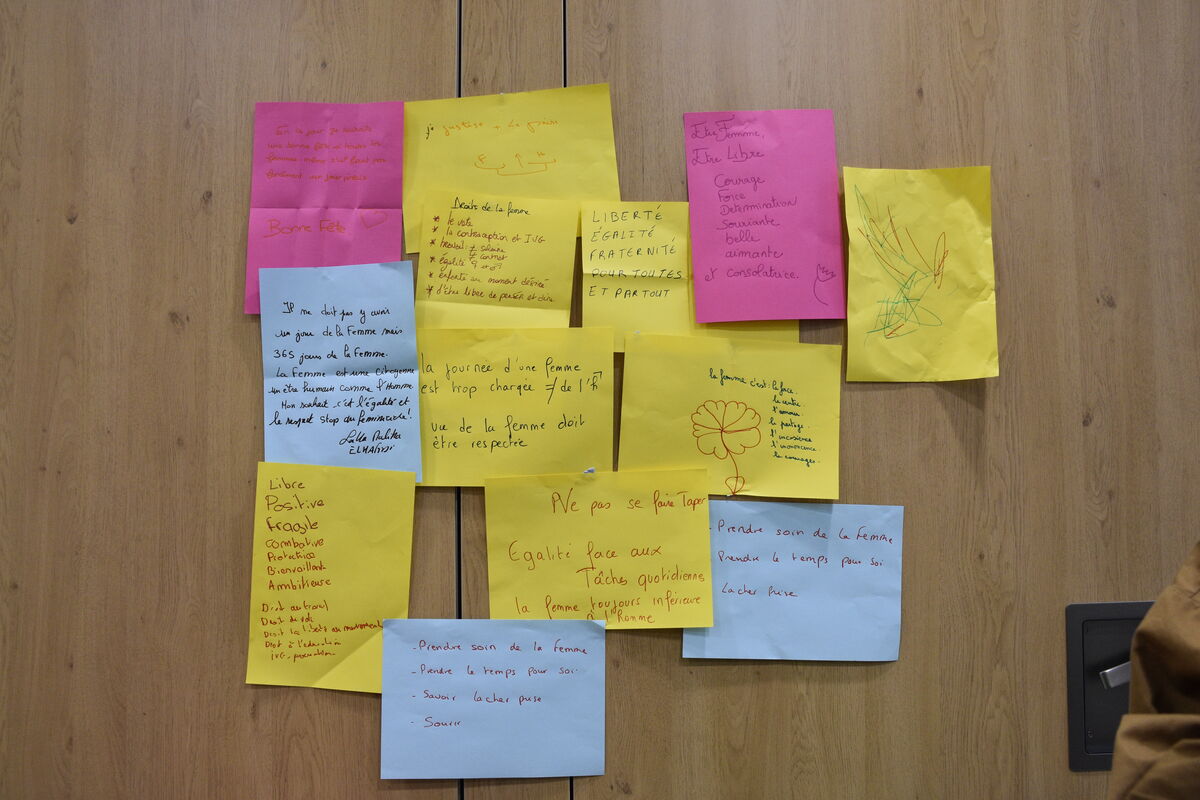 En ce jour je souhaite
une bonne fête à toutes les
femmes même s'il faut pas
forcément un jour précis
Bonne Fête
justice + la paix
Droits de la femme
* le vote
* la contraception et IVG
* travail : ≠ salaire
≠ contrat
* égalité ♀ et ♂
* enfants au moment désiré
* d'être libre de penser et dire
LIBERTÉ
ÉGALITÉ
FRATERNITÉ
POUR TOUTES
ET PARTOUT
Être Femme,
Être Libre
Courage
Force
Détermination
Souriante
belle
aimante
et consolatrice.
Il ne doit pas y avoir
un jour de la Femme mais
365 jours de la Femme.
La Femme est une citoyenne
un être humain comme l'Homme
Mon souhait c'est l'égalité et
le respect stop au féminicide!
la journée d'une femme
est trop chargée ≠ de l'h
vue de la femme doit
être respectée
la femme c'est: la face
le centre
l'amour
le partage...
l'innocence
le courage..
Libre
Positive
Fragile
Combative
Protectrice
Bienveillant
Ambitieuse
Droit au travail
Droit de vote
Droit la liberté au mouvement
Droit à l'éducation
IVG, procréation
Ne pas se faire Taper
Egalité face aux
Tâches quotidiennes
la femme toujours inférieure
à l'homme
- Prendre soin de la Femme
- Prendre le temps pour soi
Lacher prise
- Prendre soin de la Femme
- Prendre le temps pour soi
- Savoir lacher prise
- Sourir